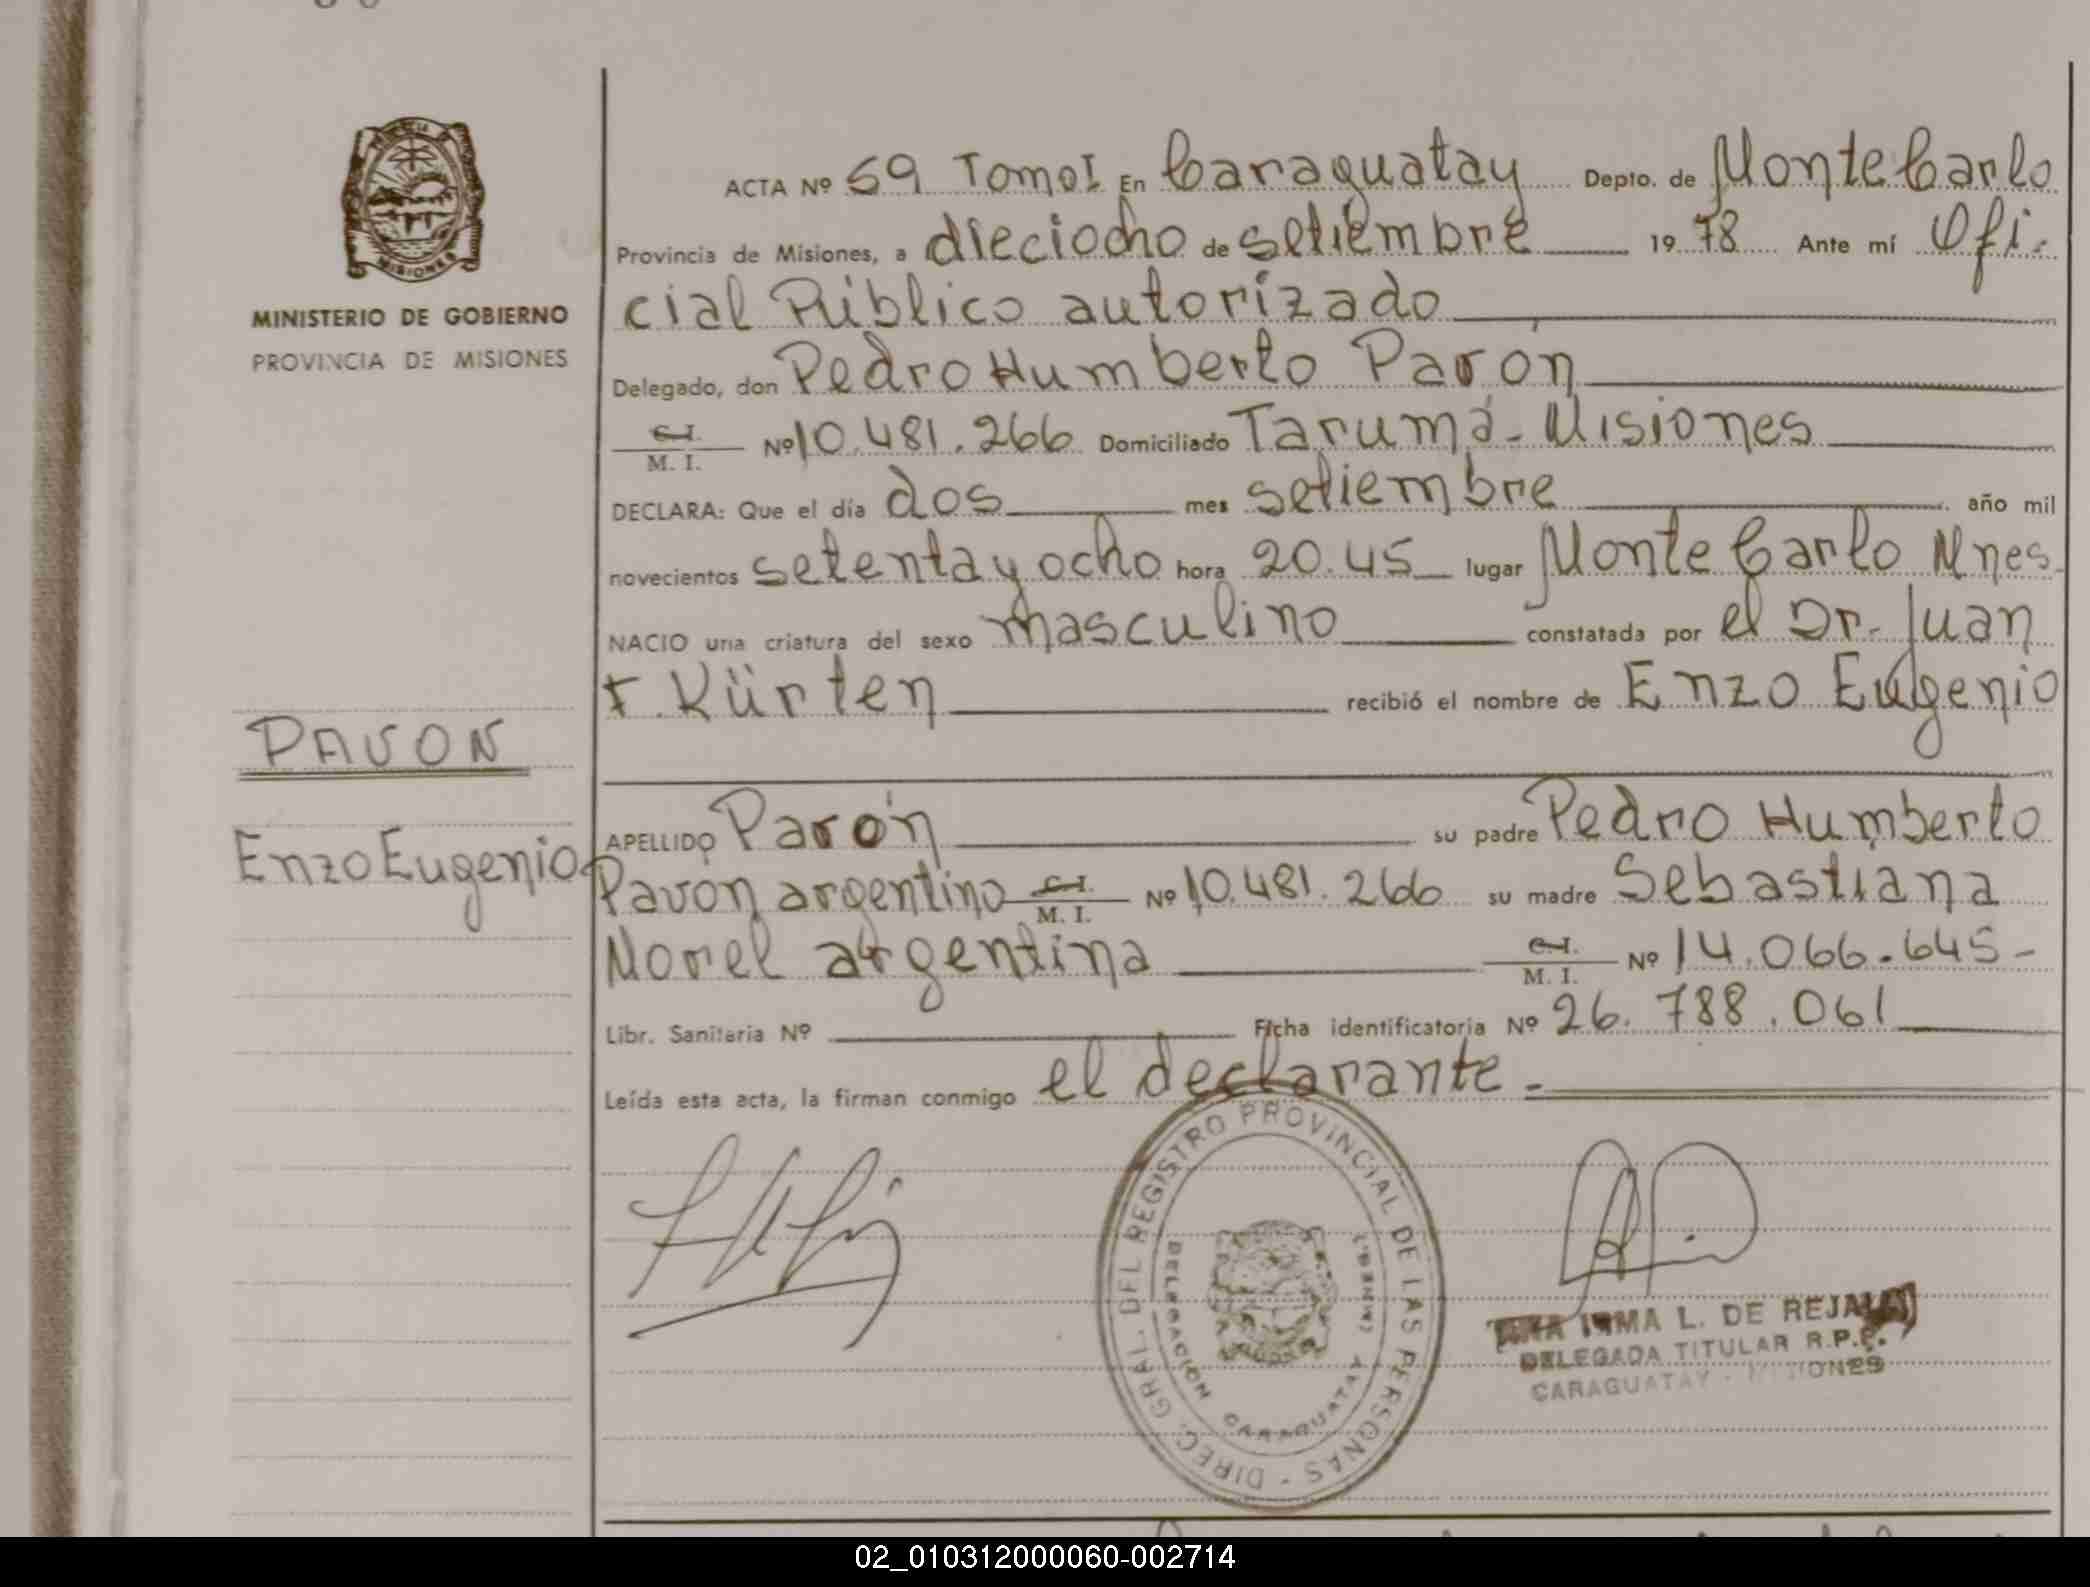 PROVINCIA DE
MISIONES
MINISTERIO DE GOBIERNO
PROVINCIA DE MISIONES
PAVON
Enzo Eugenio
ACTA Nº 59 Tomo I En Caraguatay Depto. de Monte Carlo
Provincia de Misiones, a dieciocho de setiembre 1978 Ante mí Ofi-
cial Público autorizado
Delegado, don Pedro Humberto Pavón
C.I.
M. I. Nº 10.481.266 Domiciliado Tarumá - Misiones
DECLARA: Que el día dos mes setiembre año mil
novecientos setenta y ocho hora 20.45 lugar Monte Carlo Mnes
NACIO una criatura del sexo masculino constatada por el Dr. Juan
F. Kürten recibió el nombre de Enzo Eugenio
APELLIDO Pavón su padre Pedro Humberto
Pavón argentino C.I. M. I. Nº 10.481.266 su madre Sebastiana
Morel argentina C.I. M. I. Nº 14.066.645-
Libr. Sanitaria Nº Ficha identificatoria Nº 26.788.061
Leída esta acta, la firman conmigo el declarante.-
DIREC. GRAL. DEL REGISTRO PROVINCIAL DE LAS PERSONAS -
DELEGACION CARAGUATAY
IRMA L. DE REJALA
DELEGADA TITULAR R.P.P.
CARAGUATAY - MISIONES
02_010312000060-002714